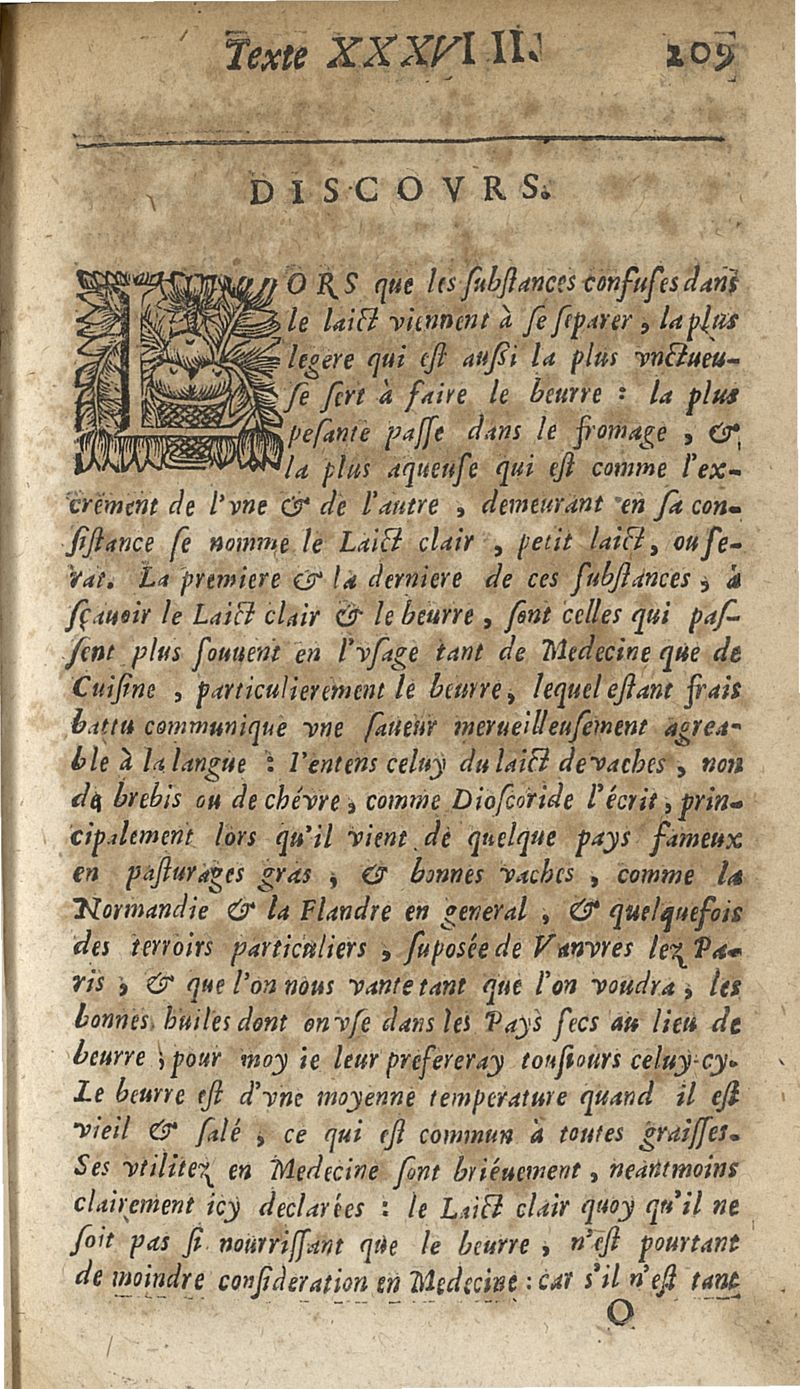 Texte XXXVIII. 209
DISCOVRS.
LORS que les ſubſtances confuſes dans
le laict viennent à ſe ſeparer, la plus
legere qui eſt auſſi la plus vnctueu-
ſe ſert à faire le beurre : la plus
peſante paſſe dans le fromage, &
la plus aqueuſe qui eſt comme l'ex-
crement de l'vne & de l'autre, demeurant en ſa con-
ſiſtance ſe nomme le Laict clair, petit laict, ou ſe-
rat. La premiere & la derniere de ces ſubſtances, à
ſçauoir le Laict clair & le beurre, ſont celles qui paſ-
ſent plus ſouuent en l'vſage tant de Medecine que de
Cuiſine, particulierement le beurre, lequel eſtant frais
battu communique vne ſaueur merueilleuſement agrea-
ble à la langue : I'entens celuy du laict de vaches, non
de brebis ou de chévre, comme Dioſcoride l'écrit, prin-
cipalement lors qu'il vient de quelque pays fameux
en paſturages gras, & bonnes vaches, comme la
Normandie & la Flandre en general, & quelquefois
des terroirs particuliers, ſuposée de Vanvres lez Pa-
ris, & que l'on nous vante tant que l'on voudra, les
bonnes huiles dont on vſe dans les Pays ſecs au lieu de
beurre, pour moy ie leur prefereray touſiours celuy-cy.
Le beurre eſt d'vne moyenne temperature quand il eſt
vieil & ſalé, ce qui eſt commun à toutes graiſſes.
Ses vtilitez en Medecine ſont briéuement, neantmoins
clairement icy declarées : le Laict clair quoy qu'il ne
ſoit pas ſi nourriſſant que le beurre, n'eſt pourtant
de moindre conſideration en Medecine : car s'il n'eſt tant
O